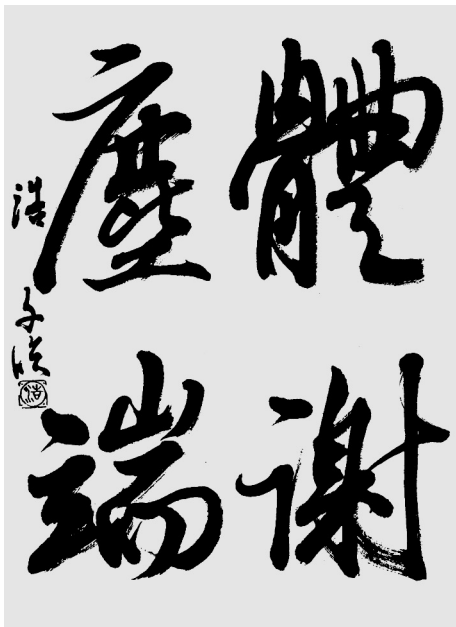 體謝
塵端
浩